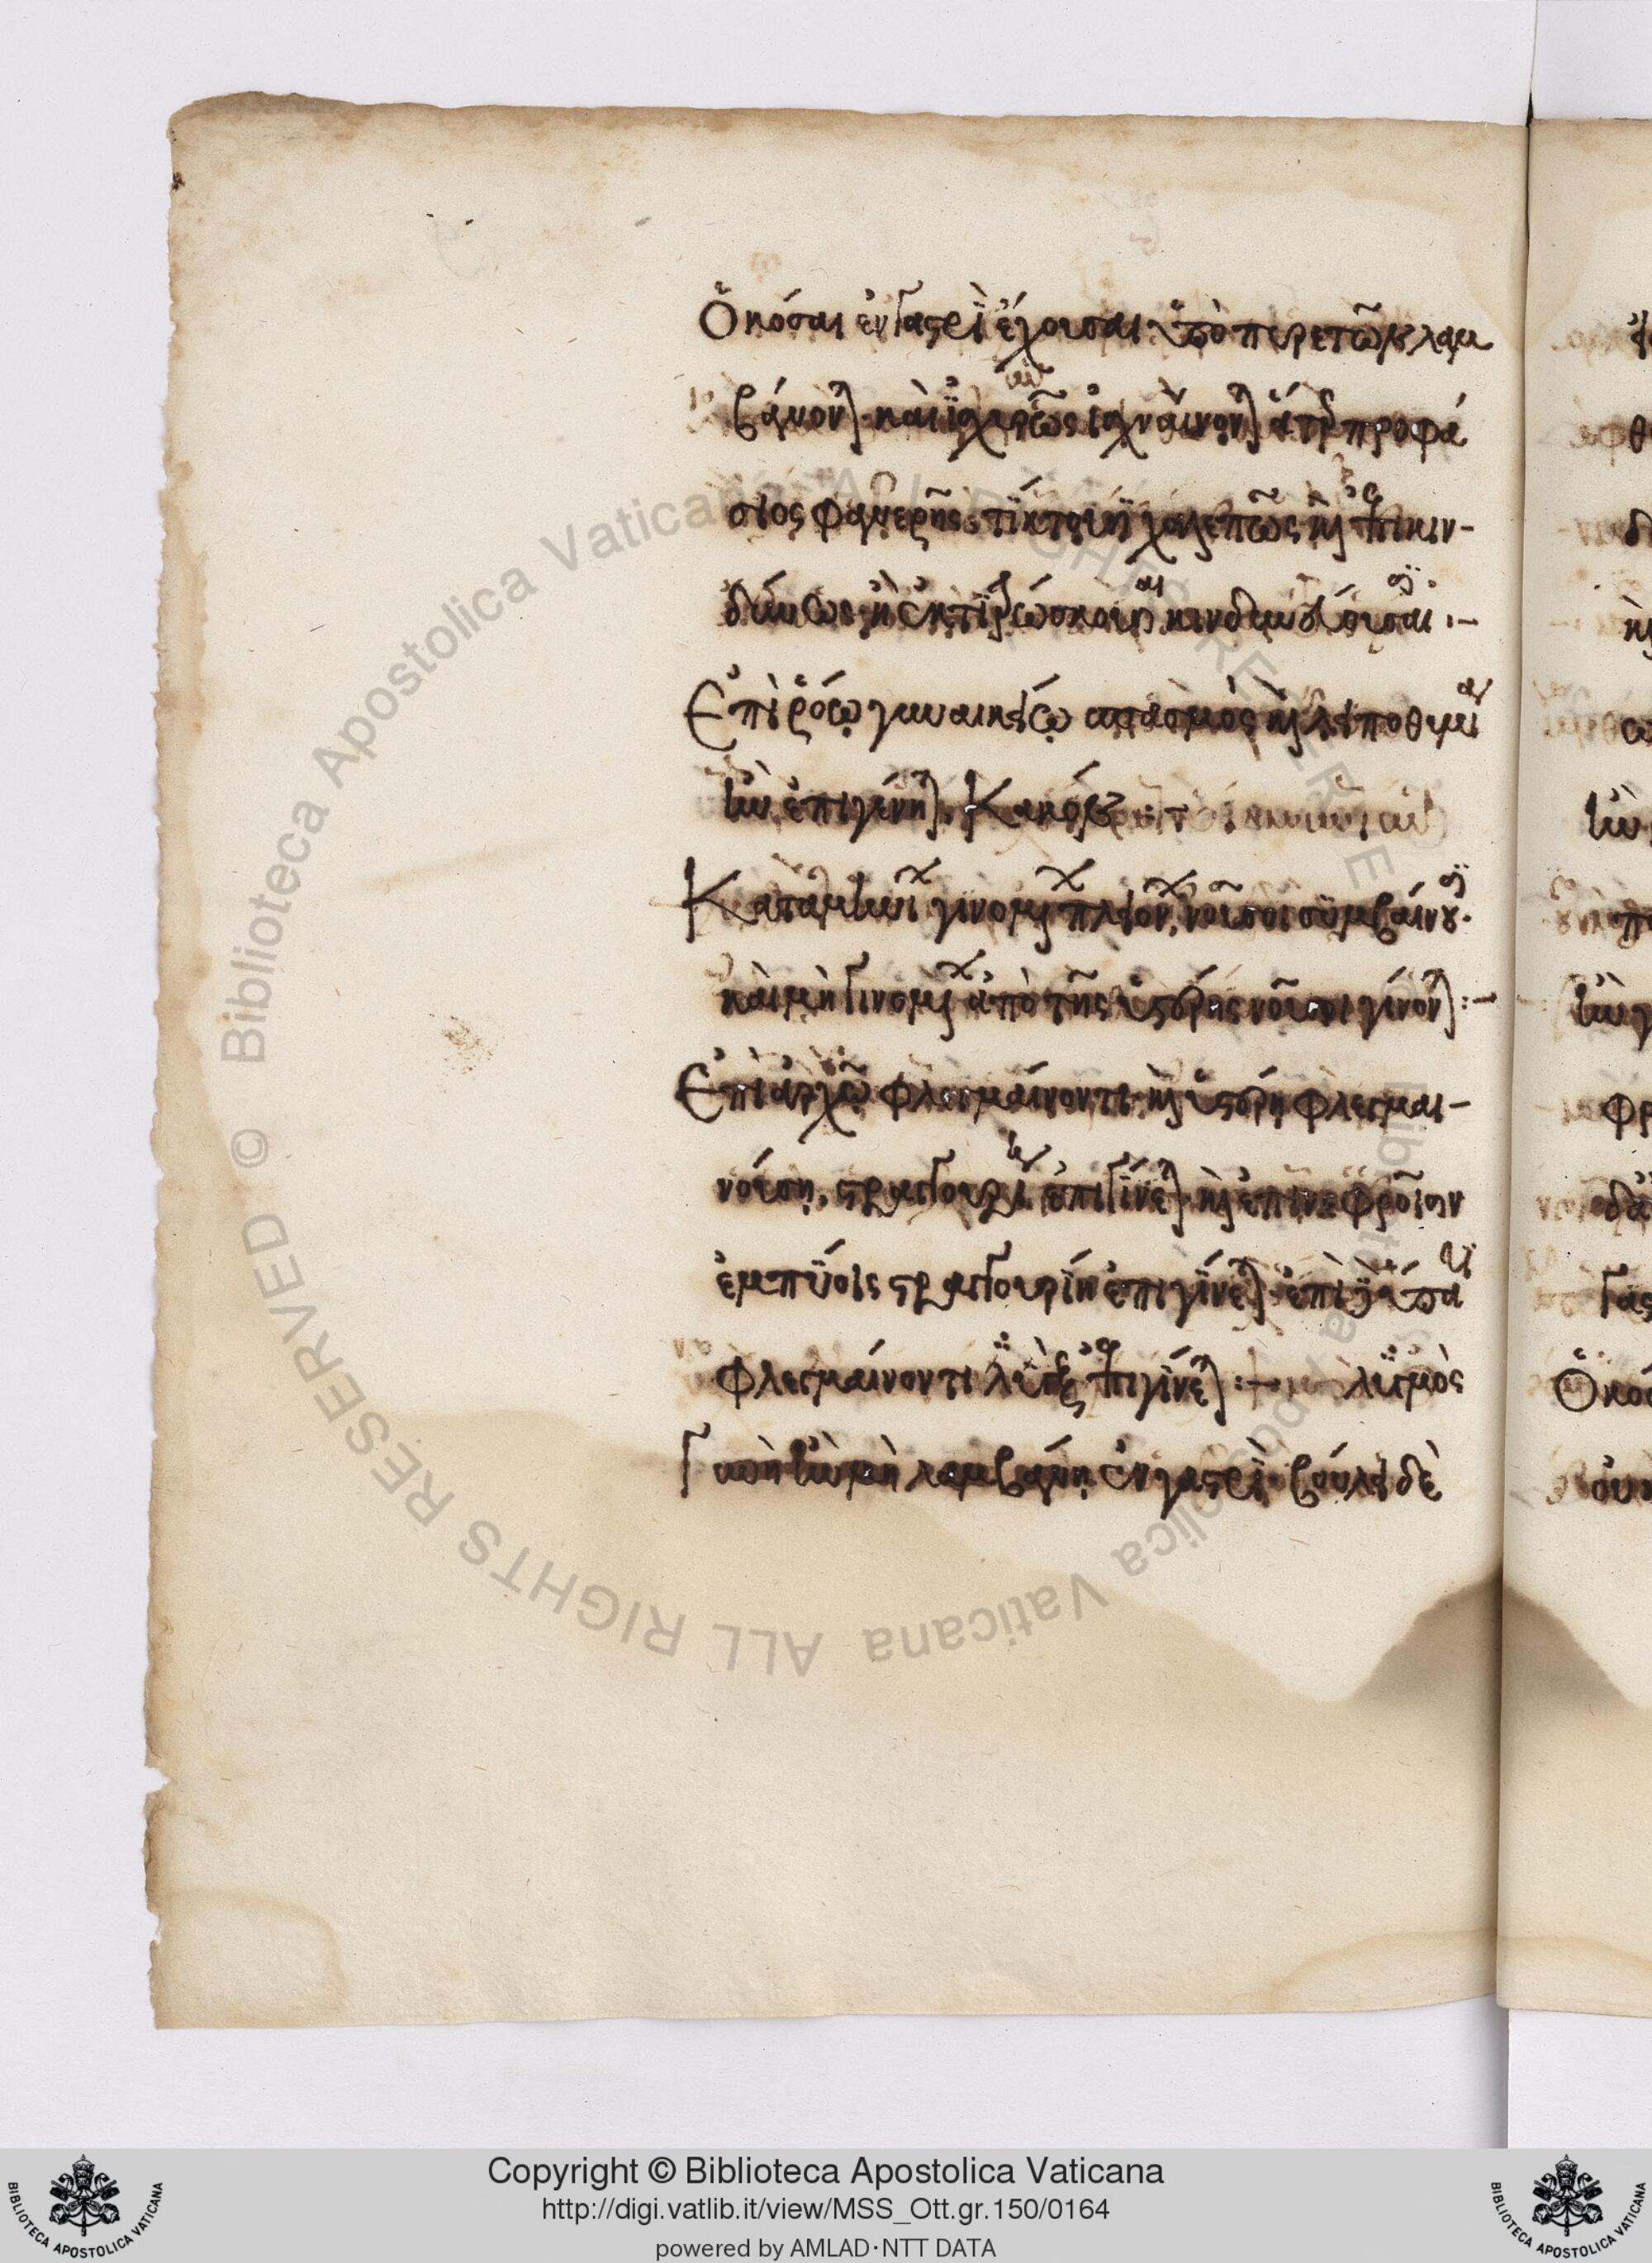 Ὁκόσαι ἐν γαστρὶ ἔχουσαι ὑπὸ πυρετῶν λαμ
βάνονται καὶ ἰσχυρῶς ἰσχναίνονται ἄτερ προφά
σιος φανερῆς τίκτουσι χαλεπῶς καὶ ἐπικιν-
δύνως ἢ ἐκτιτρώσκουσαι κινδυνεύουσαι :-
Ἐπὶ ῥόῳ γυναικείῳ σπασμὸς καὶ λειποθυμία
ἢν ἐπιγένηται, Κακόν :-
Καταμηνίων γινομένων πλειόνων, νοῦσοι συμβαίνουσι.
καὶ μὴ γινομένων ἀπὸ τῆς ὑστέρης νοῦσοι γίνονται :-
Ἐπὶ ἀρχῷ φλεγμαίνοντι καὶ ὑστέρῃ φλεγμαι-
νούσῃ, στραγγουρίη ἐπιγίνεται καὶ ἐπὶ νεφροῖσιν
ἐμπύοις στραγγουρίη ἐπιγίνεται ἐπὶ ἥπατι
φλεγμαίνοντι λὺγξ ἐπιγίνεται :- λυγμὸς
Γυνὴ ἢν μὴ λαμβάνῃ ἐν γαστρὶ βούλει δὲ
© Biblioteca Apostolica Vaticana ALL RIGHTS RESERVED © Biblioteca Apostolica Vaticana ALL RIGHTS RESERVED
Copyright © Biblioteca Apostolica Vaticana
http://digi.vatlib.it/view/MSS_Ott.gr.150/0164
powered by AMLAD·NTT DATA
BIBLIOTECA APOSTOLICA VATICANA
BIBLIOTECA APOSTOLICA VATICANA